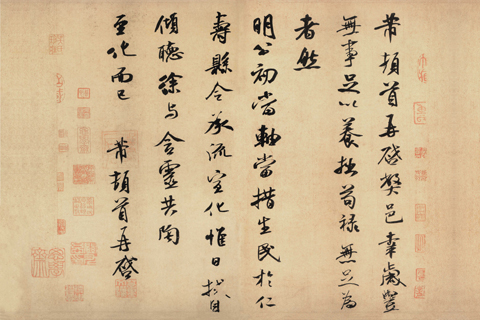 芾頓首再啓弊邑幸歲豐
無事足以養拙苟祿無足爲
者然
明公初當軸當措生民於仁
壽縣令承流宣化惟日拭目
傾聽徐与含靈共陶
至化而已 芾頓首再啓